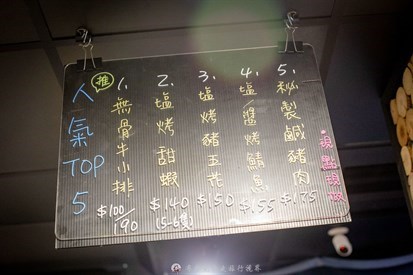 人氣TOP5
推
1.無骨牛小排
$100/190
2.塩烤甜蝦
$140
(5-6隻)
3.塩烤豬五花
$150
4.塩/醬烤鯖魚
$155
5.秘製鹹豬肉
$175
現點現做